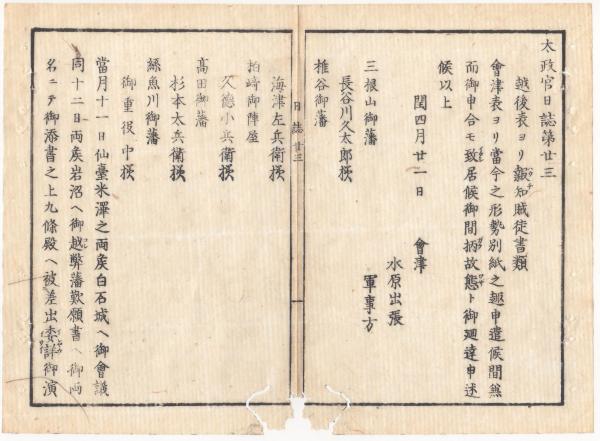 太政官日誌第廿三
越後表ヨリ報知賊徒書類
會津表ヨリ當今之形勢別紙之趣申遣候間無
而御申合モ致居候御間柄故態ト御廻達申述
候以上
閏四月廿一日 會津
水原出張
軍事方
三根山御藩
長谷川久太郎様
椎谷御藩
日誌 廿三
海津左兵衛様
柏﨑御陣屋
久德小兵衛様
高田御藩
杉本太兵衛様
絲魚川御藩
御重役中様
當月十一日仙臺米澤之両矦白石城ヘ御會議
同十二日両矦岩沼ヘ御越弊藩歎願書ヘ御両
名ニテ御添書之上九條殿ヘ被差出委詳御演